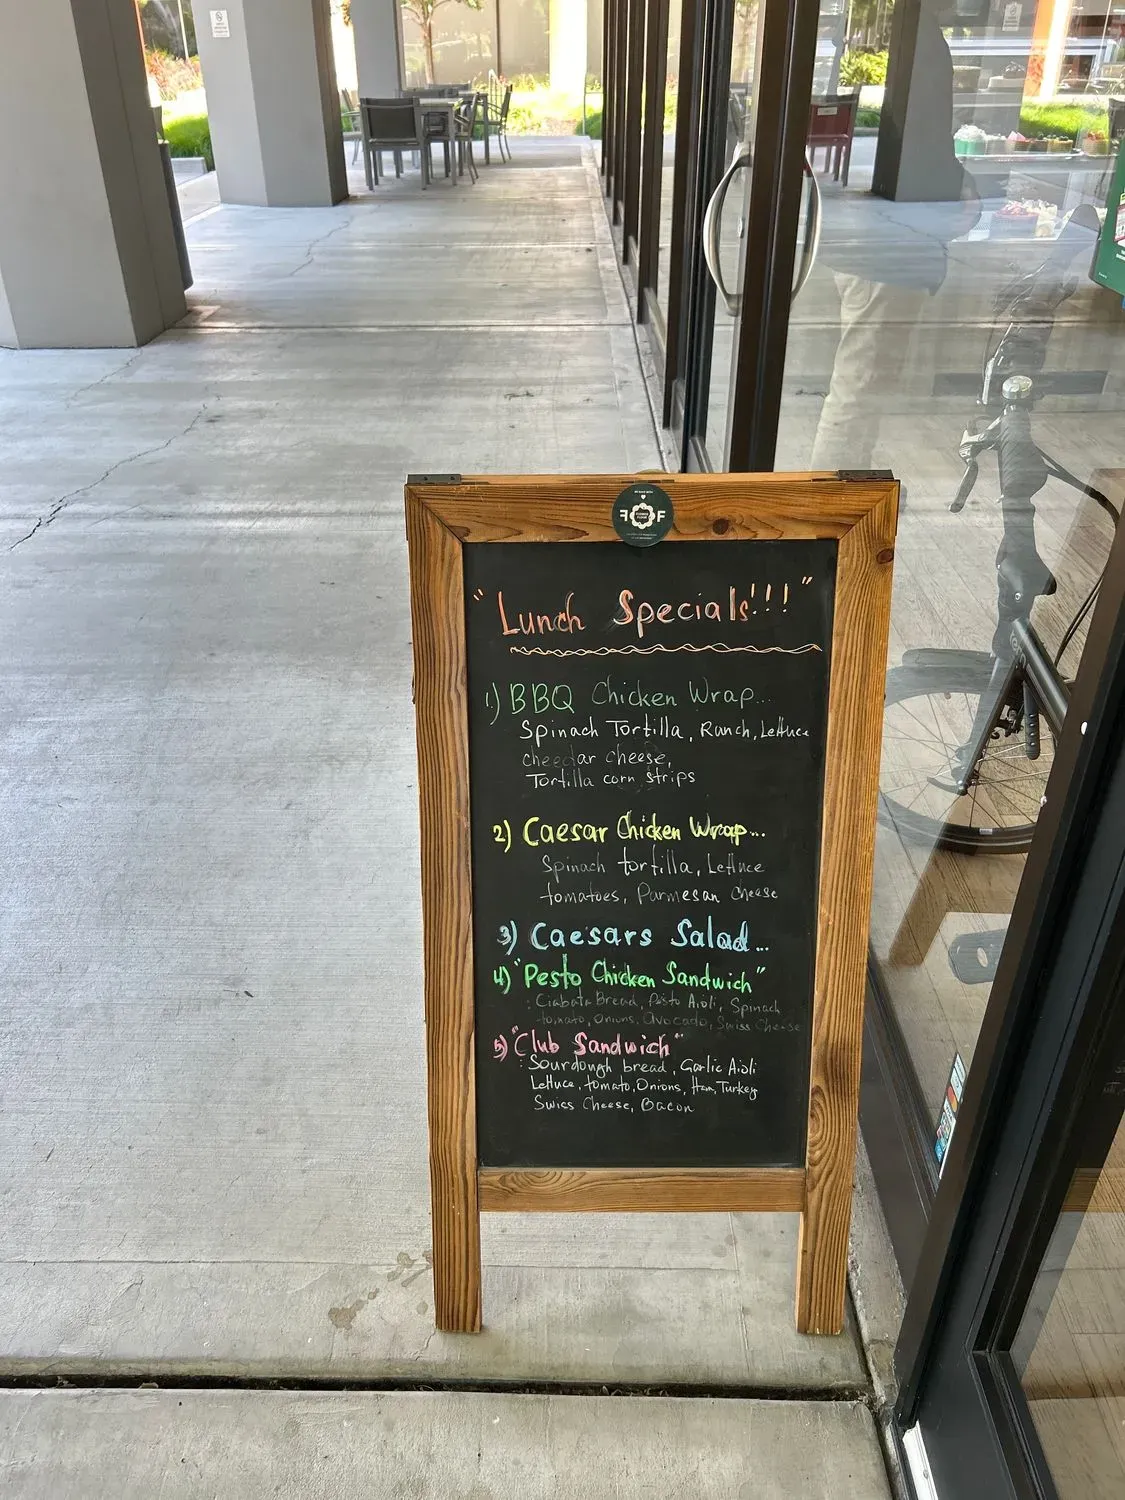 "Lunch Specials!!!"
1) BBQ Chicken Wrap...
Spinach Tortilla, Ranch, Lettuce
cheedar cheese,
Tortilla corn strips
2) Caesar Chicken Wrap...
Spinach tortilla, Lettuce
tomatoes, Parmesan Cheese
3) Caesars Salad...
4) "Pesto Chicken Sandwich"
: Ciabata Bread, Pesto Aioli, Spinach
tomato, Onions, Avocado, Swiss Cheese
5) "Club Sandwich"
: Sourdough bread, Garlic Aioli
Lettuce, tomato, Onions, Ham, Turkey
Swiss Cheese, Bacon